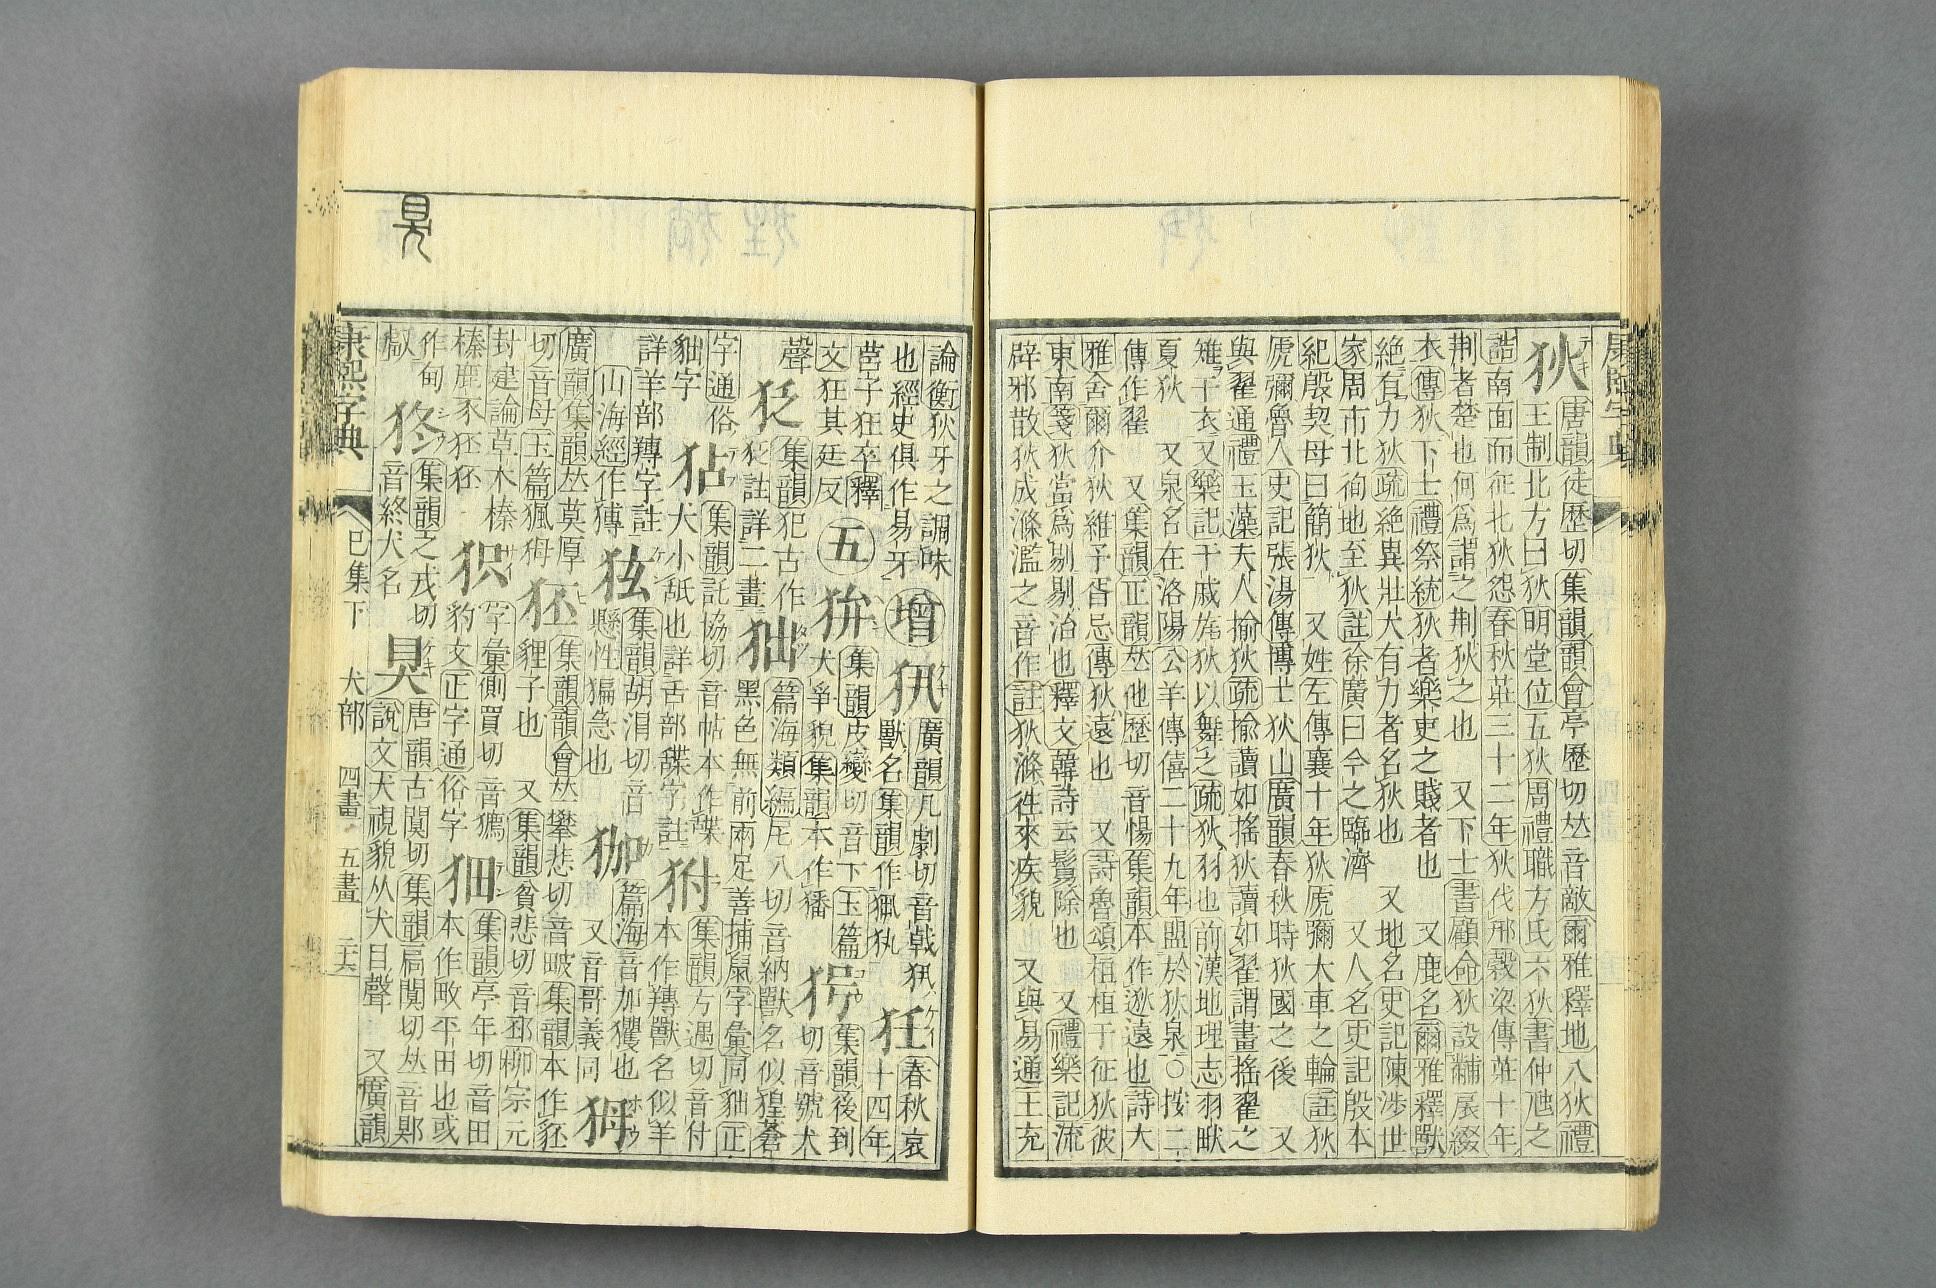 狄唐韻徒歷切集韻韻會亭歷切𠀤音敵爾雅釋地八狄禮
王制北方曰狄明堂位五狄周禮職方氏六狄書仲虺之
誥南面而征北狄怨春秋莊三十二年狄伐邢穀梁傳莊十年
荆者楚也何爲謂之荆狄之也 又下士書顧命狄設黼扆綴
衣傳狄下士禮祭統狄者樂吏之賤者也 又鹿名爾雅釋獸
絕有力狄疏絕異壯大有力者名狄也 又地名史記陳涉世
家周市北徇地至狄註徐廣曰今之臨濟 又人名史記殷本
紀殷契母曰簡狄 又姓左傳襄十年狄虒彌大車之輪註狄
虒彌魯人史記張湯傳博士狄山廣韻春秋時狄國之後 又
與翟通禮玉藻夫人揄狄疏揄讀如搖狄讀如翟謂畫搖翟之
雉于衣又樂記干戚旄狄以舞之疏狄羽也前漢地理志羽畎
夏狄 又泉名在洛陽公羊傳僖二十九年盟於狄泉○按二
傳作翟 又集韻正韻𠀤他歷切音惕集韻本作逖遠也詩大
雅舍爾介狄維予胥忌傳狄遠也 又詩魯頌桓桓于征狄彼
東南箋狄當爲剔剔治也釋文韓詩云鬄除也 又禮樂記流
辟邪散狄成滌濫之音作註狄滌往來疾貌 又與易通王充
論衡狄牙之調味
也經史俱作易牙
增
廣韻几劇切音戟
獸名集韻作
狂春秋哀十四年
莒子狂卒釋
文狂其廷反
五
集韻皮變切音下玉篇
犬爭貌集韻本作
集韻後到
切音號犬
聲
犯集韻犯古作
註詳二畫
篇海類編尼八切音納獸名似猩蒼
黑色無前兩足善捕鼠字彙同貀正
字通俗
貀字
狧集韻託協切音帖本作
犬小舐也詳舌部
字註
狘
集韻方遇切音付
本作䍸獸名似羊
詳羊部䍸字註
山海經作
集韻胡涓切音
懸性猵急也
篇海音加玃也
又音哥義同
廣韻集韻𠀤莫厚
切音母玉篇猦㺳
狉集韻韻會𠀤攀悲切音䫌集韻本作豾
貍子也 又集韻貧悲切音邳柳宗元
封建論草木榛
榛鹿豕狉狉
字彙側買切音
豹文正字通俗字
集韻亭年切音田
本作畋平田也或
作甸
集韻之戎切
音終犬名
狊唐韻古闃切集韻局闃切𠀤音鄓
說文犬視貌从犬目聲 又廣韻
康熙字典 巳集下 犬部 四畫 五畫
狊